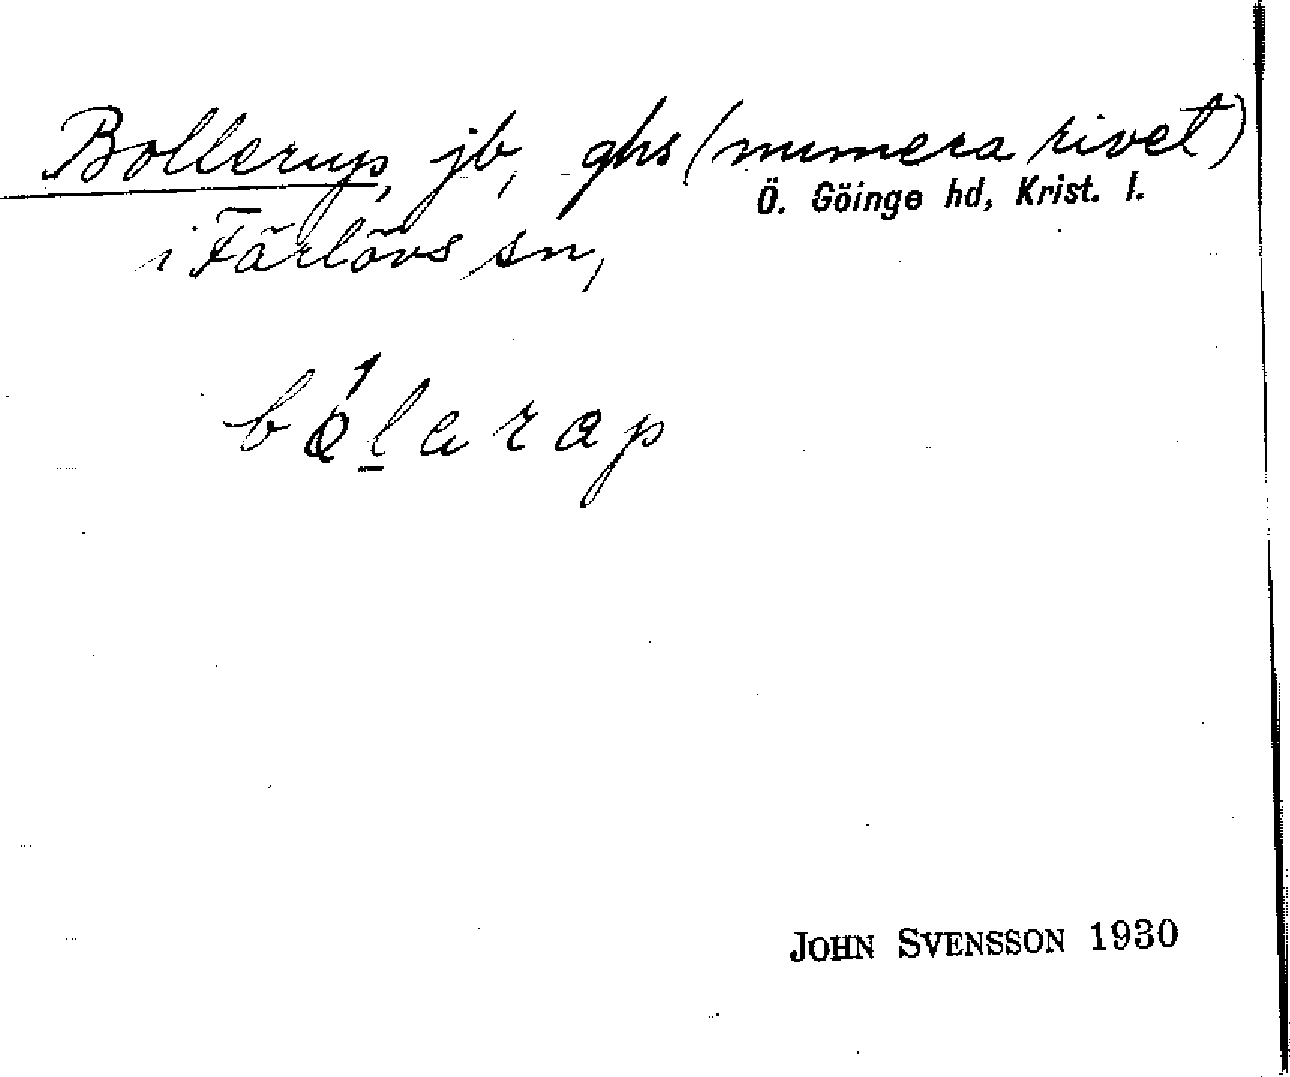 Bollerup, jb, ghs (numera rivet)
Ö. Göinge hd, Krist. l.
i Färlövs sn,
JOHN SVENSSON 1930